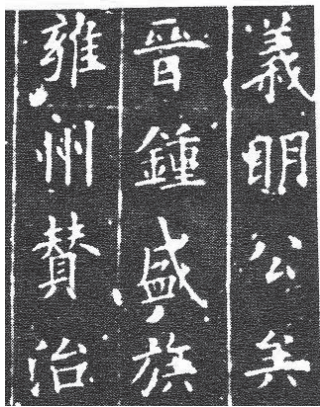 義明公矣
晉鍾盛族
雍州賛治